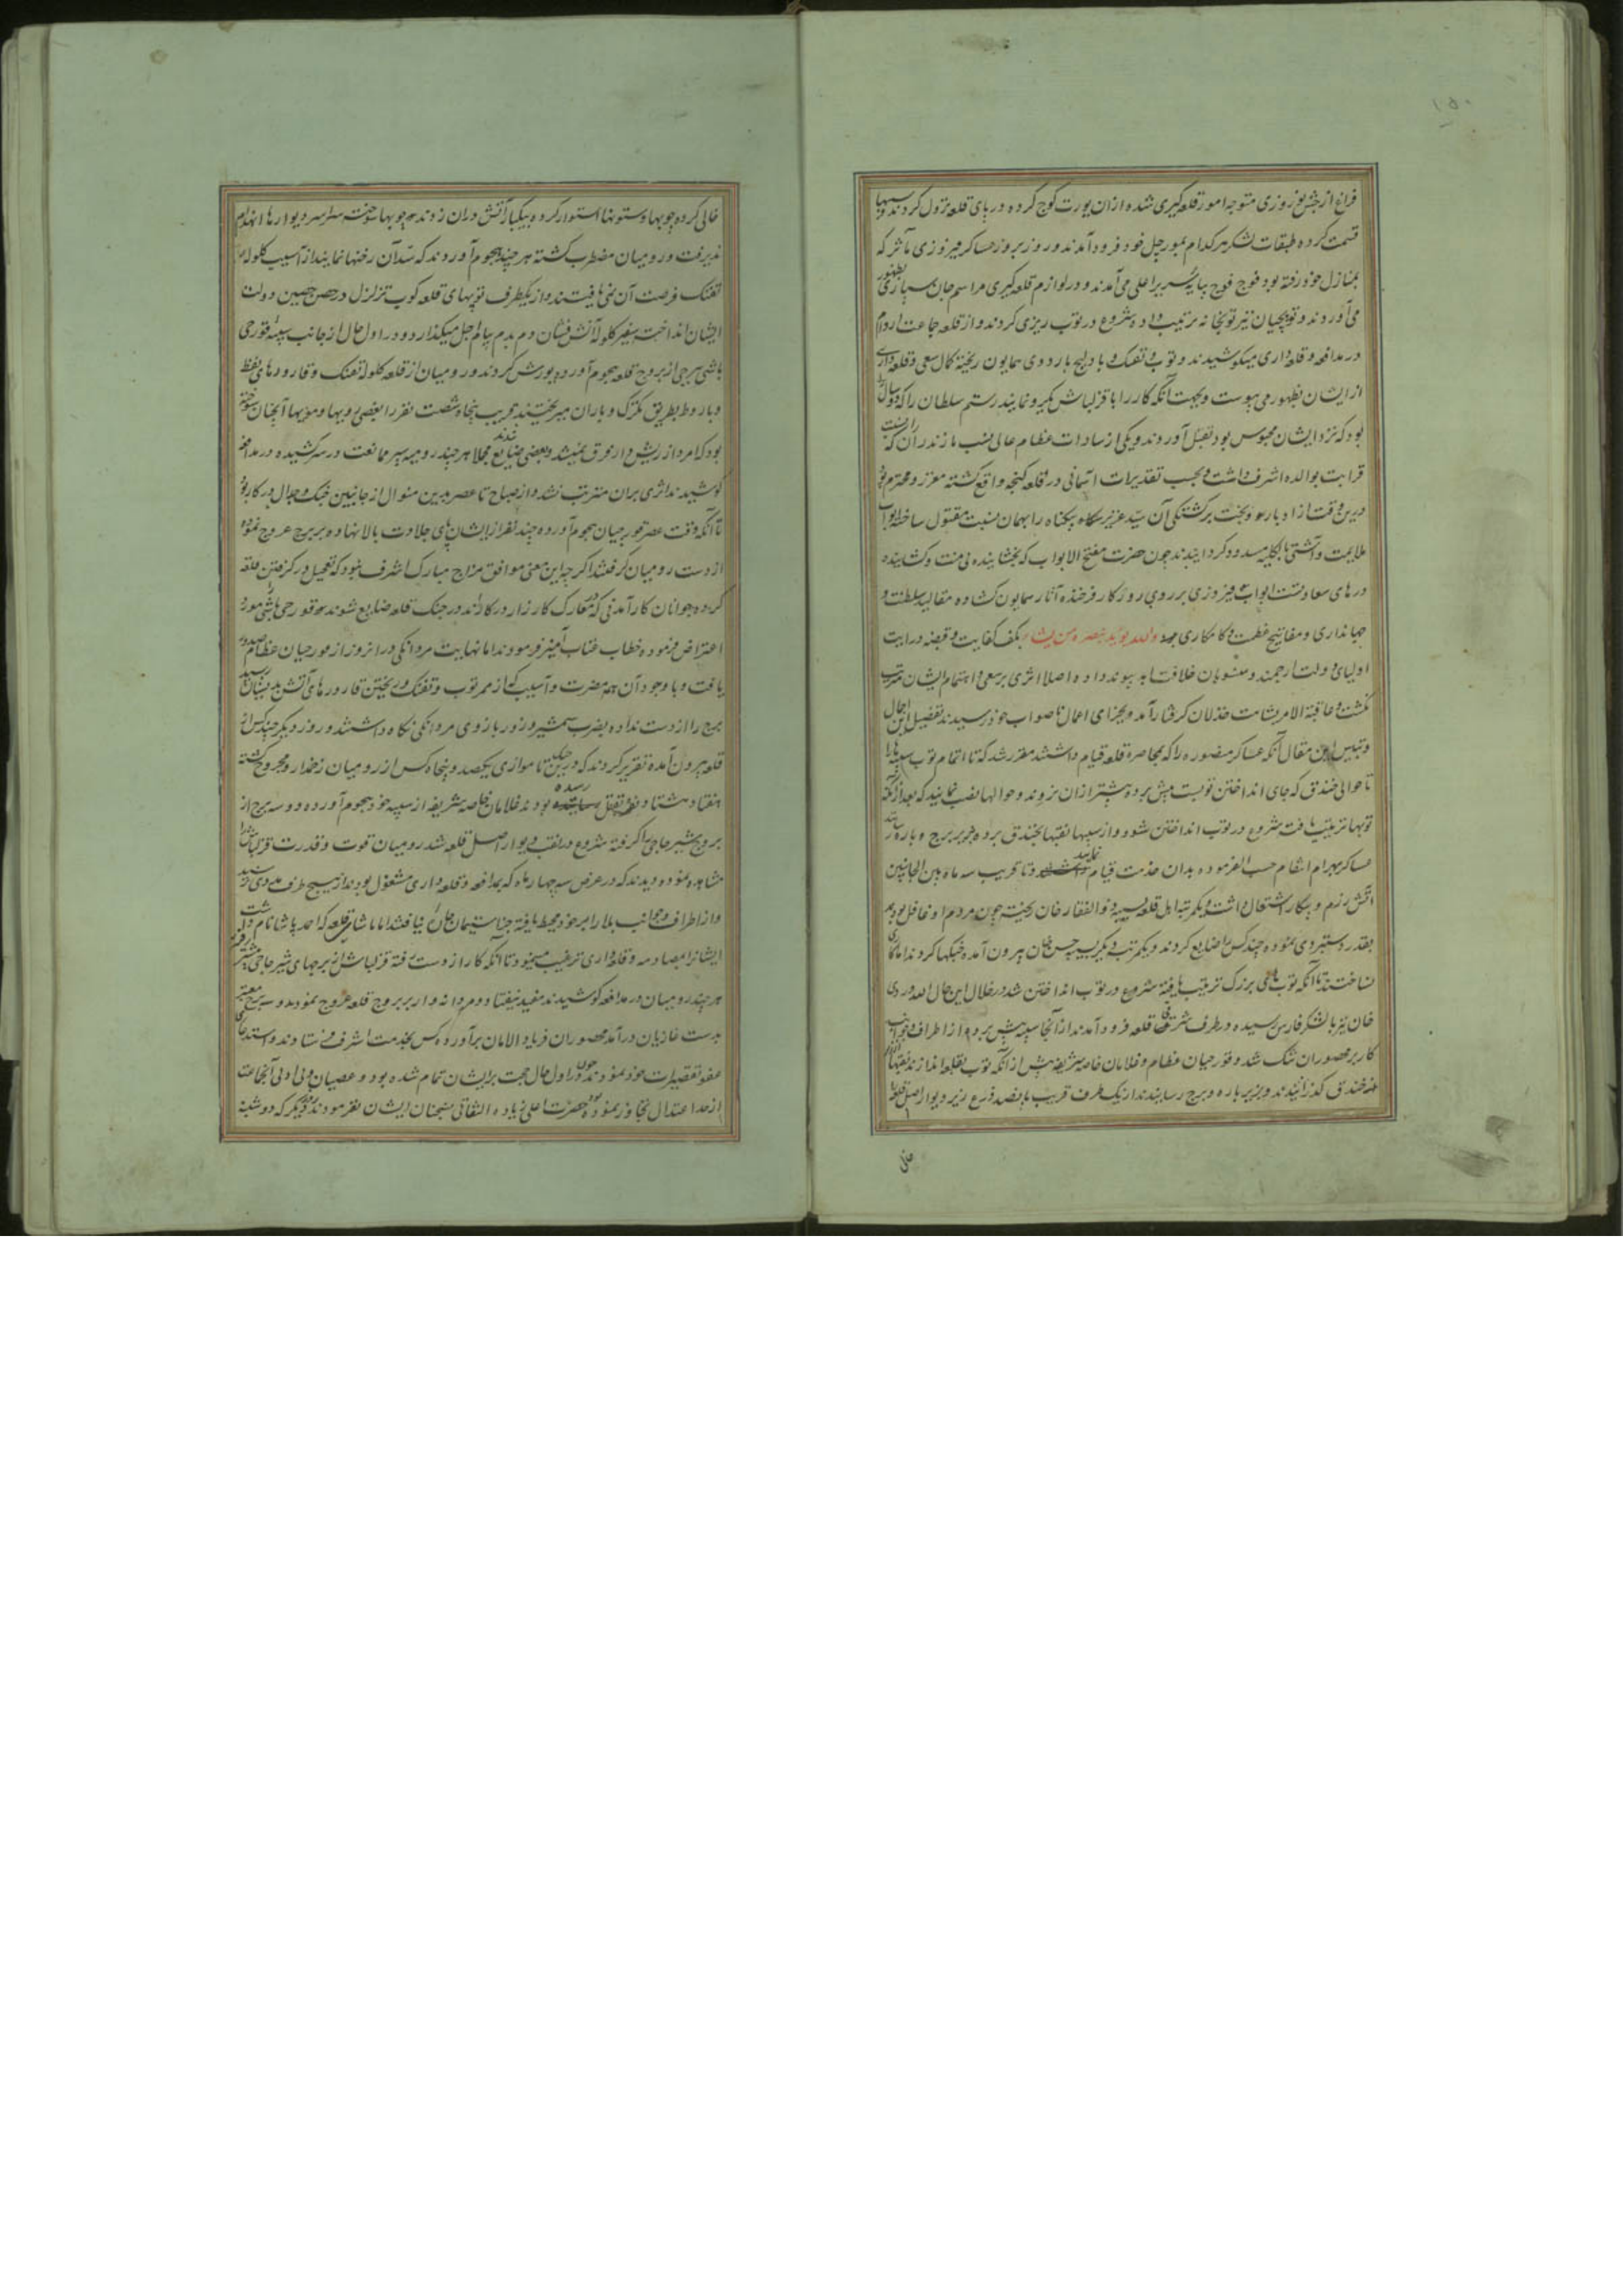 ۱۵۰
فراغ از جشن نوروزی متوجه امور قلعه گیری شده ازان یورت کوچ کرده در پای قلعه نزول کردند و سیبها
قسمت کرده طبقات لشکر هر کدام بمورچل خود فرود آمدند و روز بروز عساکر فیروزی مآثر که
بمنازل خود رفته بود فوج فوج بپایه سریر اعلی می آمدند و در لوازم قلعه گیری مراسم جان سپاری بظهور
می آوردند و توپچیان نیز توپخانه ترتیب داده شروع در توپ ریزی کردند و از قلعه جماعت اروام
در مدافعه و قلعه داری میکوشیدند و توپ و تفنک و بادلیج باردوی همایون ریخته کمال سعی و قلعه داری
از ایشان بظهور می پیوست و بجهت آنکه کار را با قزلباش یکرو نمایند رستم سلطان را که دو سال
بود که نزد ایشان محبوس بود بقتل آوردند و یکی از سادات عظام عالی نسب مازندران که
قرابت بوالده اشرف داشت و بحسب تقدیرات آسمانی در قلعه کنجه واقع کشته معزز و محترم بود
درین وقت از ادبار و بخت برکشتکی آن سید عزیز بیکناه را بهمان نسبت مقتول ساخته ابواب
ملایمت و آشتی بالکلیه مسدود کردانیدند چون حضرت مفتح الابواب که بخشاینده بی منت و کشاینده
درهای سعادتست ابواب فیروزی بر روی روزکار فرخنده آثار همایون کشاده مقالید سلطنت و
جهانداری و مفاتیح عظمت و کامکاری والله یؤید بنصره من یشاء بکف کفایت و قبضه درایت
اولیای دولت ارجمند و منسوبان خلافت ابد پیوند داده اصلا اثری بر سعی و اهتمام ایشان مترتب
نکشت و عاقبة الامر بشامت خذلان کرفتار آمده بجزای اعمال ناصواب خود رسیدند تفصیل این اجمال
و تبیین این مقال آنکه عساکر منصوره را که بمحاصره قلعه قیام داشتند مقرر شد که تا اتمام توپ سیبها را
تا حوالی خندق که جای انداختن توپست پیش برده پیشتر ازان نروند و حوالها نصب نمایند که بعد ازآنکه
توپها ترتیب یافت شروع در توپ انداختن شود و از سیبها نقبها بخندق برده بزیر برج و باره رسانند
عساکر بهرام انتقام حسب الفرموده بدان خدمت قیام نمایند و تا قریب سه ماه بین الجانبین
آتش رزم و پیکار اشتعال داشت و یکمرتبه اهل قلعه بسیبه ذوالفقار خان ریخته چون مردم او غافل بودند
بقدر دستبردی نموده چند کس را ضایع کردند و یکمرتبه دیکر بسیبه حسن خان بیرون آمده جنکها کردند اما کاری
نساختند تا آنکه توپ های بزرک ترتیب یافته شروع در توپ انداختن شد در خلال این حال الله وردی
خان نیز با لشکر فارس رسیده در طرف شرقی قلعه فرود آمدند از آنجا سیبه پیش برده از اطراف و جوانب
کار بر محصوران تنک شد و قورچیان عظام و غلامان خاصه شریفه پیش از آنکه توپ بقلعه اندازند نقبها از
خندق کذرانیدند و بزیر باره و برج رسانیدند از یک طرف قریب پانصد ذرع زیر دیوار اصل قلعه را
خالی
خالی کرده چوبها و ستونها استوار کرده بیکبار آتش دران زدند چوبها سوخته سراسر دیوارها انهدام
پذیرفت و رومیان مضطرب کشته هر چند هجوم آوردند که سد آن رخنها نمایند از آسیب کلوله
تفنک فرصت آن نمی یافتند و از یکطرف توپهای قلعه کوب تزلزل در حصن حصین دولت
ایشان انداخت سفیر کلوله آتش فشان دم بدم پیام اجل میکذارد و در اول حال از جانب سیبه قورچی
باشی برجی از بروج قلعه هجوم آورده یورش کردند و رومیان از قلعه کلوله تفنک و قارورهای نفط
و باروط بطریق تکرک و باران میریختند قریب پنجاه شصت نفر را بعضی رویها و مویها آنچنان سوخته
بود که امرد از ریش دار فرق نمیشد و بعضی ضایع شدند مجملا هر چند رومیه سپر ممانعت در سر کشیده در مدافعه
کوشیدند اثری بران مترتب نشد و از صباح تا عصر بدین منوال از جانبین جنک و جدال در کار بود
تا آنکه وقت عصر قورچیان هجوم آورده چند نفر از ایشان پای جلادت بالا نهاده بر برج عروج نموده
از دست رومیان کرفتند اکر چه این معنی موافق مزاج مبارک اشرف نبود که تعجیل در کرفتن قلعه
کرده جوانان کارآمدنی که در معارک کارزار در کارند در جنک قلعه ضایع شوند و قورچی باشی را مورد
اعتراض فرموده خطاب عتاب آمیز فرمودند اما نهایت مردانکی در آنروز از قورچیان عظام صدور
یافت و با وجود آن همه مضرت و آسیب که از ممر توپ و تفنک و ریختن قارورهای آتش بدیشان رسید
برج را از دست نداده بضرب شمشیر و زور بازوی مردانکی نکاه داشتند و روز دیکر چند کس از
قلعه بیرون آمده تقریر کردند که درین جنک تا موازی یکصد و پنجاه کس از رومیان زخمدار و مجروح کشته
هفتاد هشتاد نفر بقتل رسیده بودند غلامان خاصه شریفه از سیبه خود هجوم آورده دو سه برج از
بروج شیر حاجی را کرفته شروع در نقب دیوار اصل قلعه شد رومیان قوت و قدرت قزلباش را
مشاهده نموده دیدند که در عرض سه چهار ماه که بمدافعه و قلعه داری مشغول بودند از هیچ طرف مددی نرسید
و از اطراف و جوانب بلا را بر خود محیط یافته جز استیمان نیافتند اما پاشای قلعه که احمد پاشا نام داشت
ایشانرا بمصادمه و قلعه داری ترغیب مینمود تا آنکه کار از دست رفته قزلباش از برجهای شیر حاجی پیشتر رفته
هر چند رومیان در مدافعه کوشیدند مفید نیفتاد و مردانه وار بر بروج قلعه عروج نموده دو سه برج معتبر
بدست غازیان در آمد محصوران فریاد الامان برآورده کس بخدمت اشرف فرستادند و استدعای
عفو تقصیرات خود نمودند چون در اول حال حجت بر ایشان تمام شده بود و عصیان و بی ادبی آنجماعت
از حد اعتدال تجاوز نموده بود حضرت اعلی زیاده التفاتی بسخنان ایشان نفرمودند روز دیکر که دوشنبه